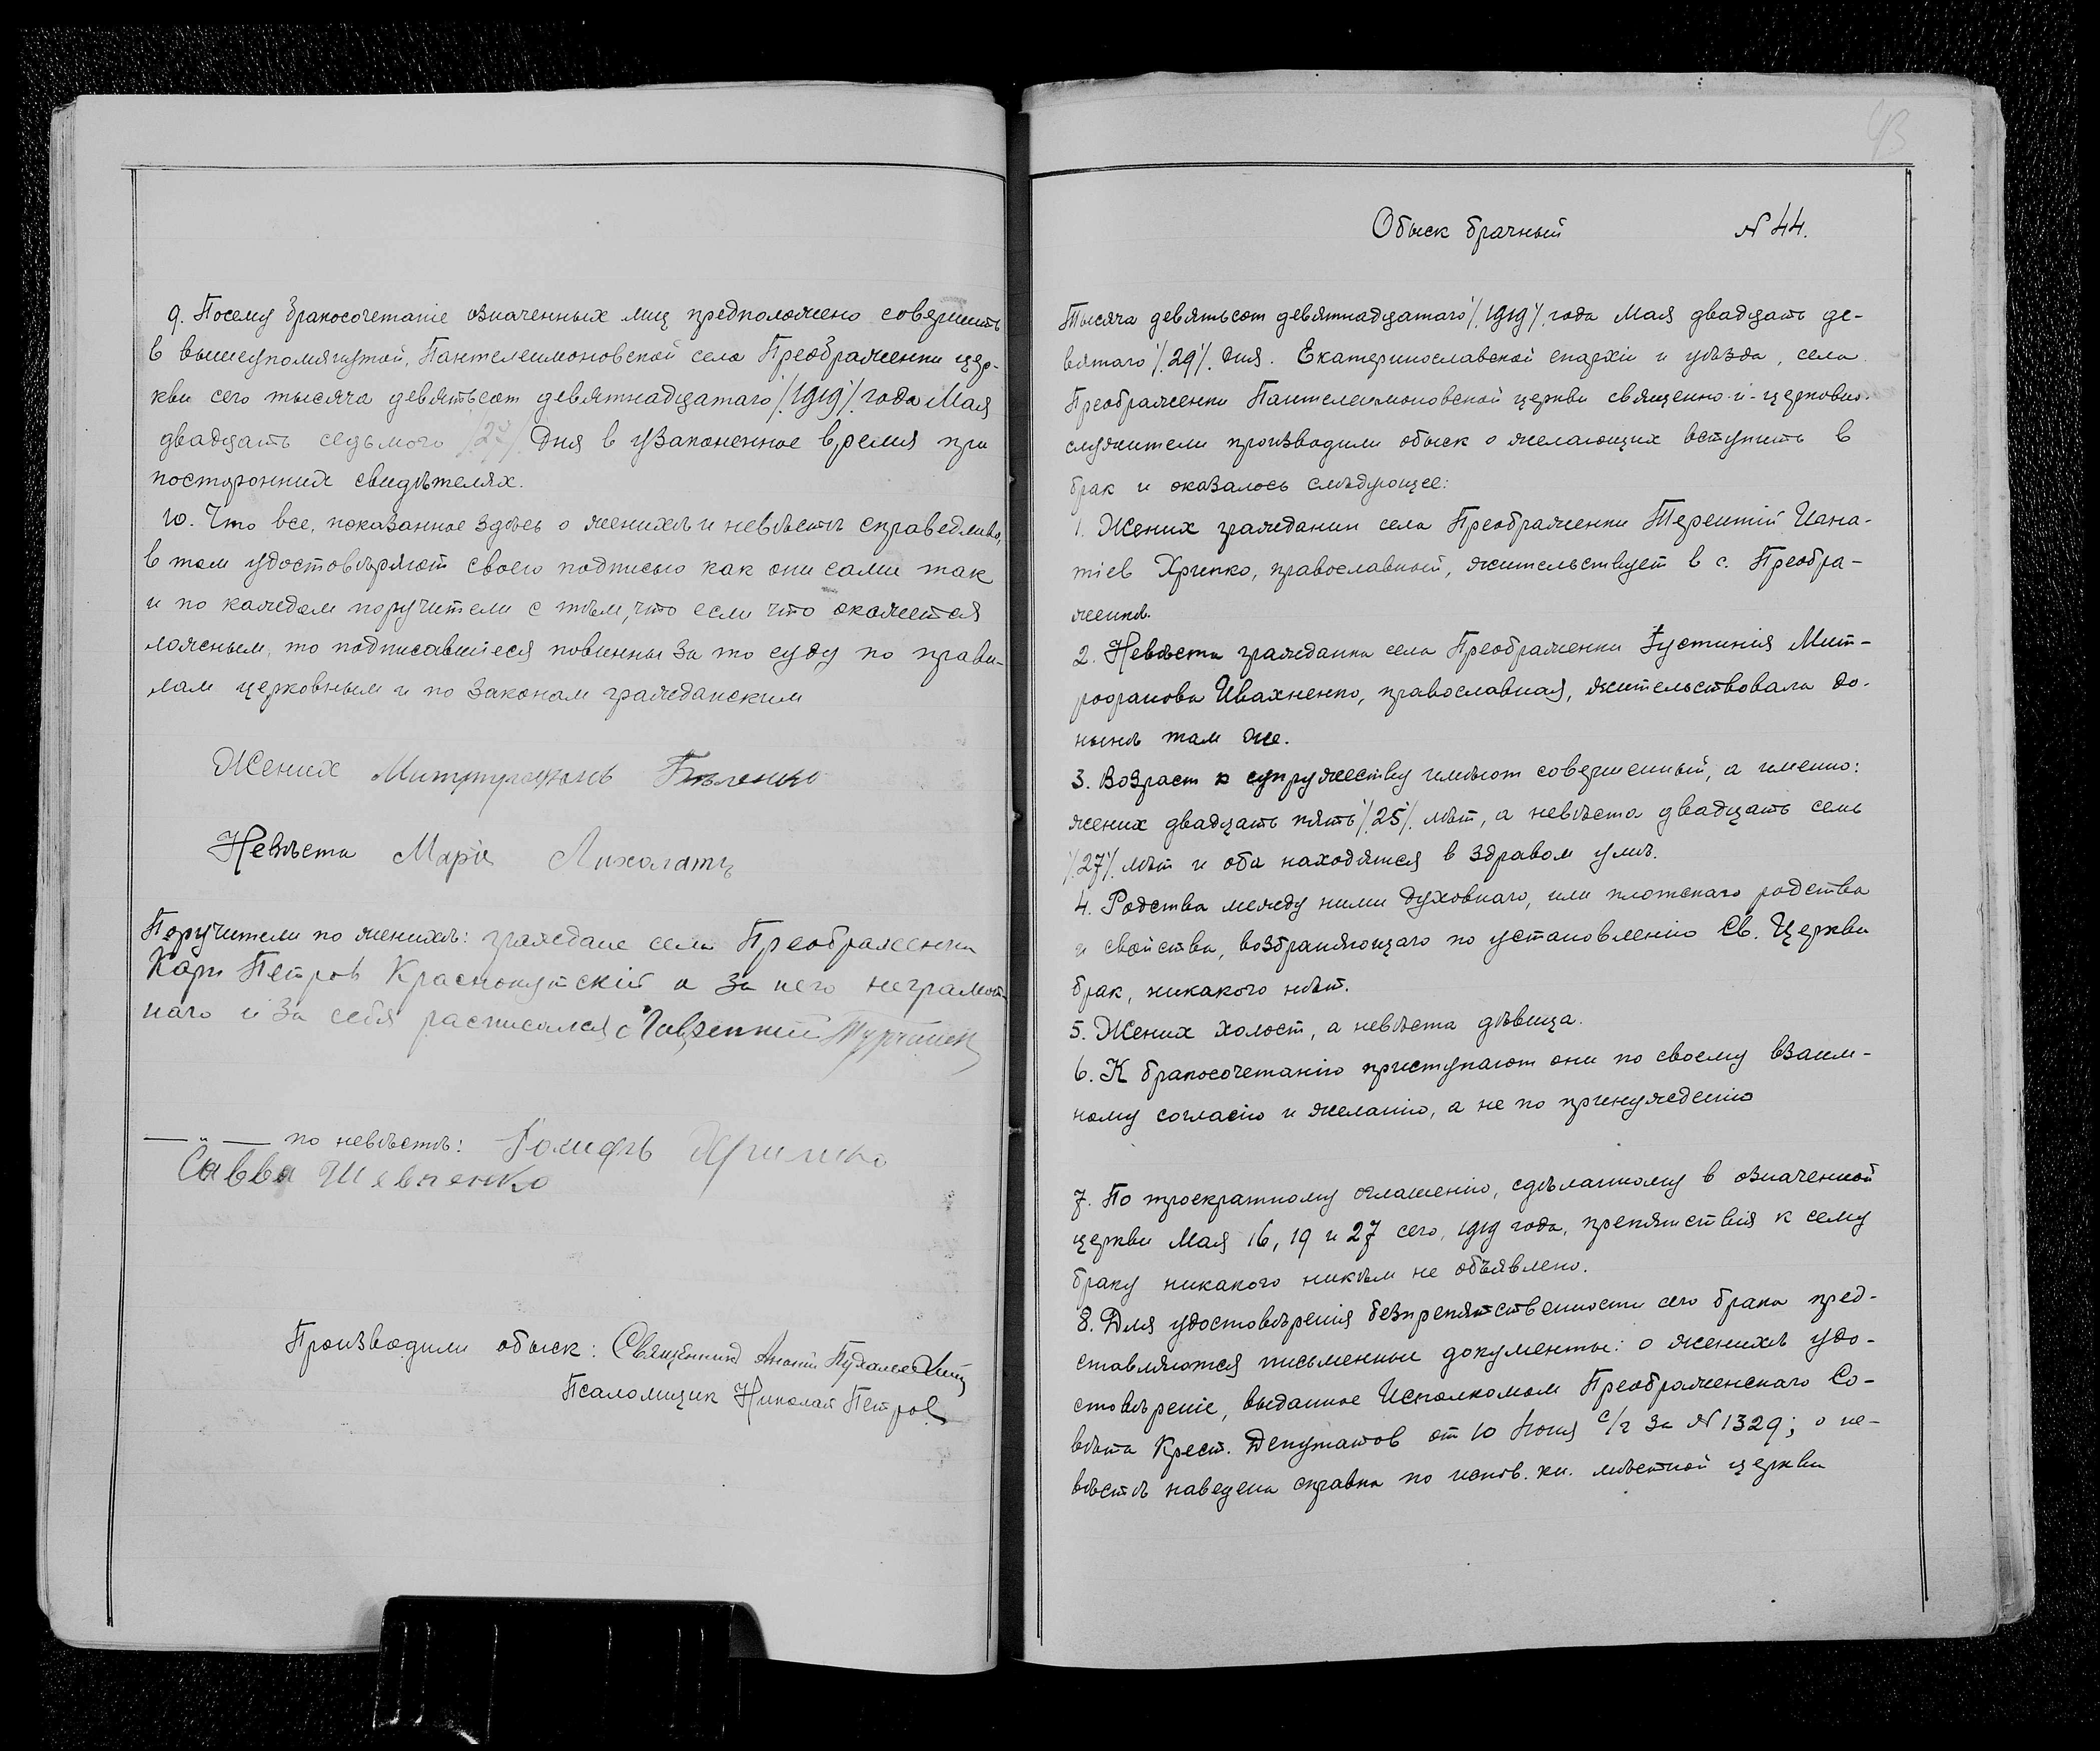 9. Посему бракосочетаніе означенных лиц предположено совершить
в вышеупомянутой, Пантелеимоновской села Преображенки цер-
кви сего тысяча девятьсот девятнадцатаго /.1919/. года Мая
двадцать седьмого /27/. дня в узаконенное время при
посторонних свидѣтелях.
10. Что все, показанное здѣсь о женихѣ и невѣстѣ справедливо,
в том удостовѣряют своею подписью как они сами так
и по каждом поручители с тѣм, что если что окажется
ложным, то подписавшіеся повинны за то суду по прави-
лам церковным и по законам гражданским
Жених Митрофанъ Бѣленко
Невѣста Марія Лихолатъ
Поручители по женихѣ: граждане села Преображенки
Карп Петров Краснокутскій а за него неграмот-
наго и за себя расписался
— „ — по невѣстѣ: Хрипко
Савва Шевченко
Производили обыск: Священник
Псаломщик Николай Петров
43
Обыск брачный № 44.
Тысяча девятьсот девятнадцатаго /.1919/. года Мая двадцать де-
вятаго /.29/. дня. Екатеринославской епархіи и уѣзда, села
Преображенки Пантелеимоновской церкви священно-и-церковно-
служители производили обыск о желающих вступить в
брак и оказалось слѣдующее:
1. Жених гражданин села Преображенки Терентій Игна-
тіев Хрипко, православный, жительствует в с. Преобра-
женкѣ.
2. Невѣста гражданка села Преображенки Іустинія Мит-
рофанова Ивахненко, православная, жительствовала до-
нынѣ там же.
3. Возраст к супружеству имѣют совершенный, а именно:
жених двадцать пять /.25/. лѣт, а невѣста двадцать семь
/.27/. лѣт и оба находятся в здравом умѣ.
4. Родства между ними духовнаго, или плотскаго родства
и свойства, возбраняющаго по установленію Св. Церкви
брак, никакого нѣт.
5. Жених холост, а невѣста дѣвица.
6. К бракосочетанію приступают они по своему взаим-
ному согласію и желанію, а не по принужденію
7. По троекратному оглашенію, сдѣланному в означенной
церкви Мая 16, 19 и 27 сего, 1919 года, препятствія к сему
браку никакого никѣм не объявлено.
8. Для удостовѣренія безпрепятственности сего брака пред-
ставляются письменные документы: о женихѣ удо-
стовѣреніе, выданное Исполкомом Преображенскаго Со-
вѣта Крест. Депутатов от 10 Іюня с/г за № 1329; о не-
вѣстѣ наведена справка по испов. кн. мѣстной церкви